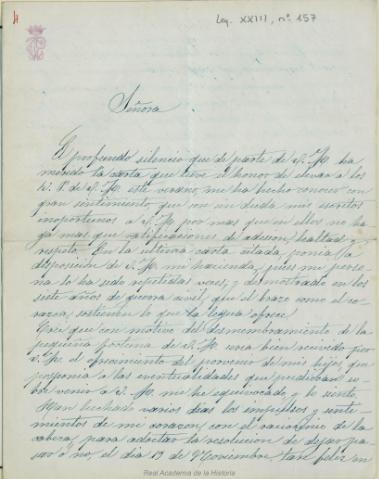 Leg. XXIII, nº 157
Señora
El profundo silencio que de parte de V. M. ha
merecido la carta que tuve el honor de elevar a los
R. P. de V. M. este verano, me ha hecho conocer con
gran sentimiento que son sin duda mis escritos
inoportunos a V. M. por mas que en ellos no ha
ga mas que ratificaciones de adhesion, lealtad y
respeto. En la ultima carta citada, ponia a
disposicion de V. M. mi hacienda, pues mi perso
na lo ha sido repetidas veces, y demostrado en los
siete años de guerra civil, que el brazo como el co-
razon, sostienen lo que la lengua ofrece.
Crei que con motivo del desmembramiento de la
pequeña fortuna de V. M. seria bien recibido por
V. M. el ofrecimiento del porvenir de mis hijos, que
posponia a las eventualidades que pudieran so-
brevenir a V. M. me he equivocado, y lo siento.
Han luchado varios dias los impulsos y senti-
mientos de mi corazon, con el raciocinio de la
cabeza, para adoptar la resolucion de dejar pa
sar o no, el dia 19 de Noviembre tan feliz en
Real Academia de la Historia